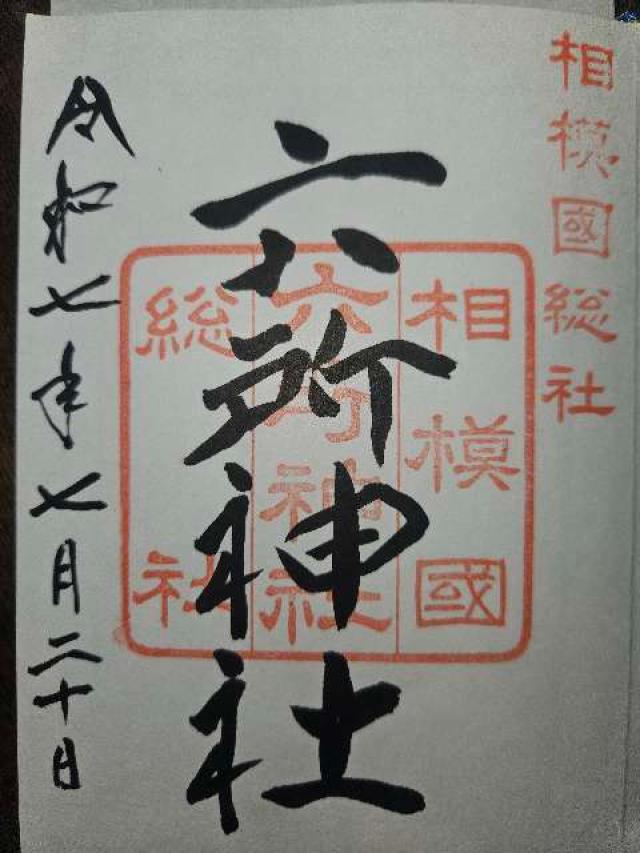 相模國総社
六所神社
相模國
六所神社
総社
令和七年七月二十日